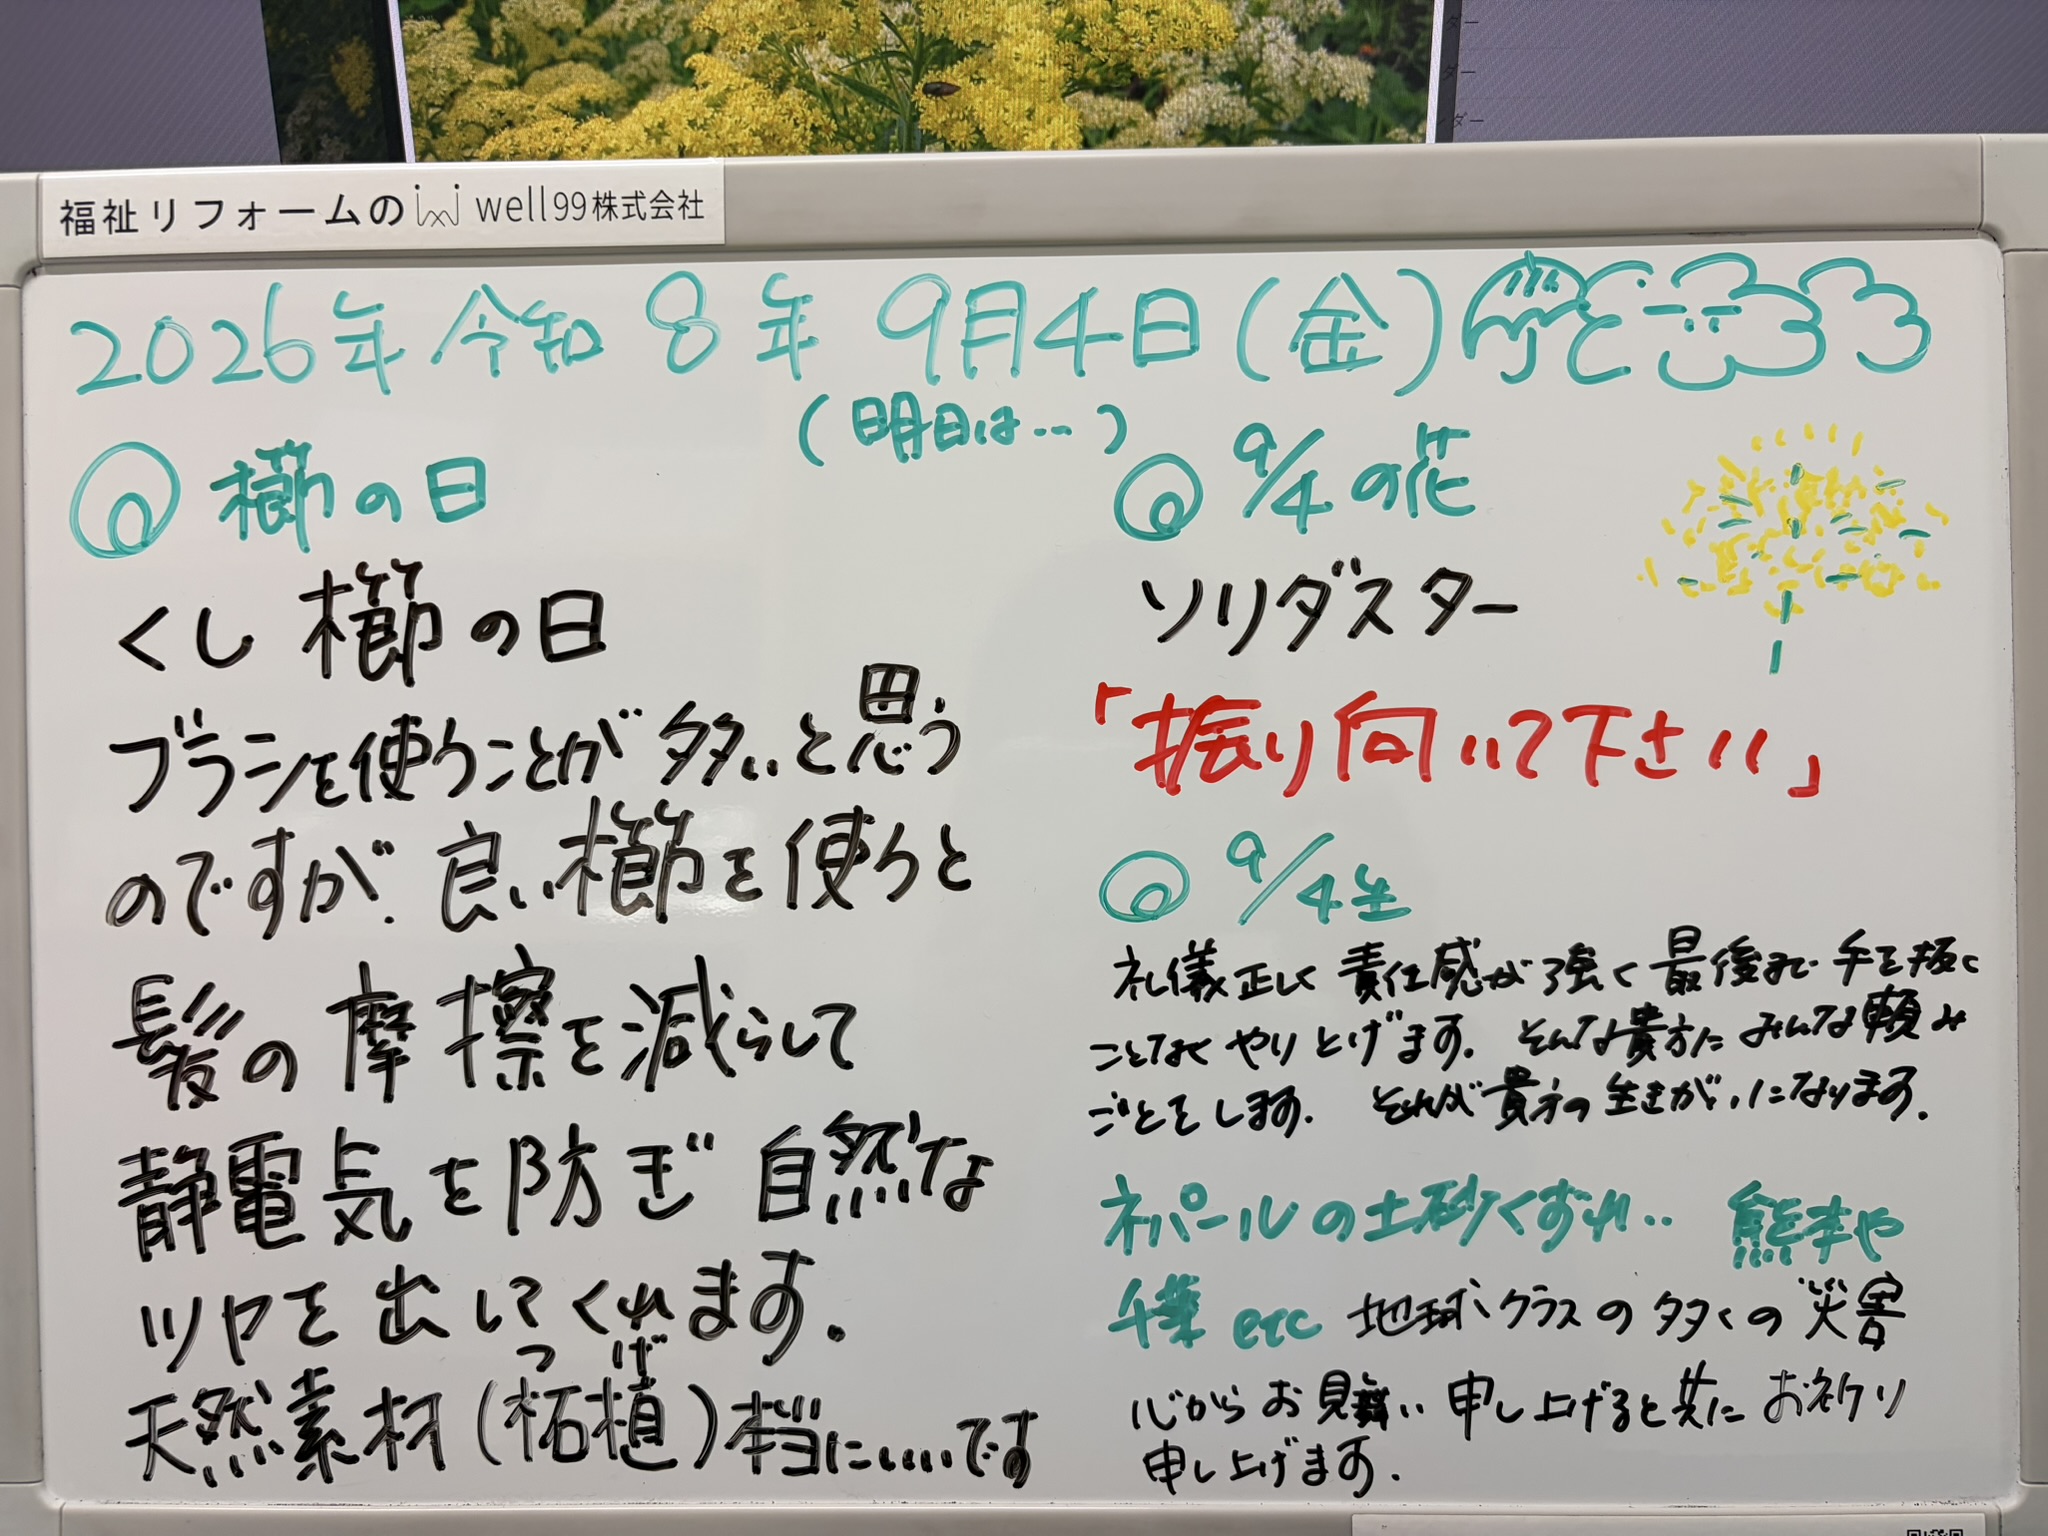 福祉リフォームの well99株式会社
2026年 令和8年 9月4日(金)
(明日は…)
櫛の日
くし 櫛の日
ブラシを使うことが多いと思う
のですが、良い櫛を使うと
髪の摩擦を減らして
静電気を防ぎ 自然な
ツヤを出してくれます。
つげ
天然素材(柘植)本当にいいです
9/4の花
ソリダスター
「振り向いて下さい」
9/4生
礼儀正しく 責任感が強く 最後まで 手を抜く
ことなく やりとげます。そんな貴方に みんな頼み
ごとをします。それが貴方の生きがいになります。
ネパールの土砂くずれ‥ 熊本や
千葉 etc 地球クラスの多くの災害
心からお見舞い申し上げると共に お祈り
申し上げます。